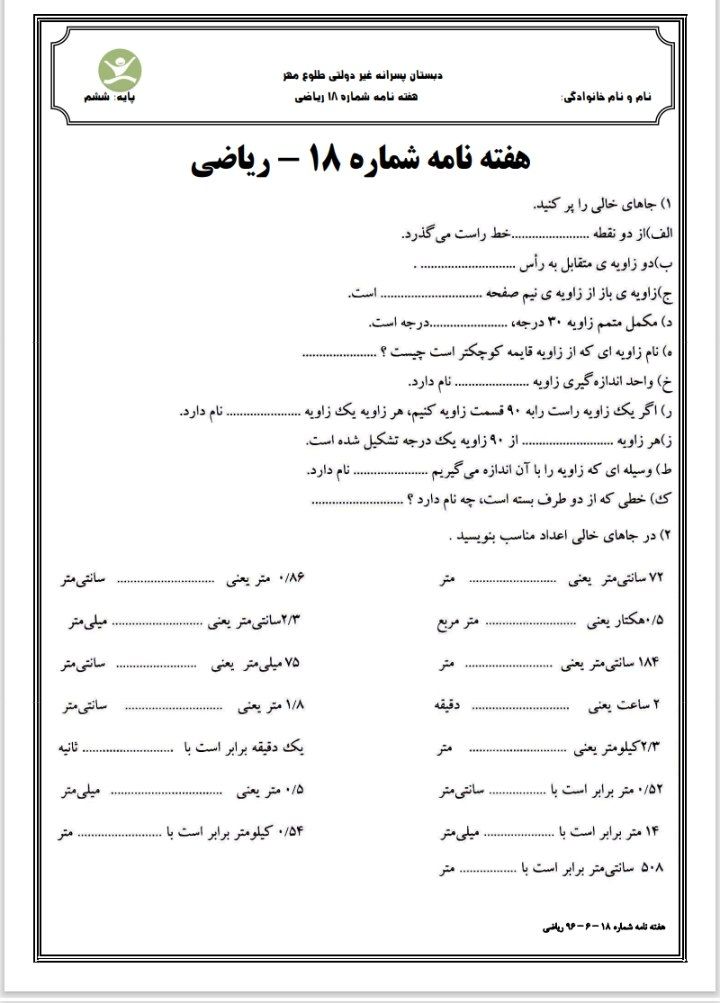 دبستان پسرانه غیر دولتی طلوع مهر
نام و نام خانوادگی: هفته نامه شماره ۱۸ ریاضی پایه: ششم
هفته نامه شماره ۱۸ – ریاضی
۱) جاهای خالی را پر کنید.
الف)از دو نقطه .......................خط راست می‌گذرد.
ب)دو زاویه ی متقابل به رأس ............................ .
ج)زاویه ی باز از زاویه ی نیم صفحه .............................. است.
د) مکمل متمم زاویه ۳۰ درجه، .......................درجه است.
ه) نام زاویه ای که از زاویه قایمه کوچکتر است چیست ؟ ......................
خ) واحد اندازه‌گیری زاویه ...................... نام دارد.
ر) اگر یک زاویه راست رابه ۹۰ قسمت زاویه کنیم، هر زاویه یک زاویه ...................... نام دارد.
ز)هر زاویه ........................... از ۹۰ زاویه یک درجه تشکیل شده است.
ط) وسیله ای که زاویه را با آن اندازه می‌گیریم ...................... نام دارد.
ک) خطی که از دو طرف بسته است، چه نام دارد ؟ ...........................
۲) در جاهای خالی اعداد مناسب بنویسید .
۷۲ سانتی‌متر یعنی .......................... متر ۰/۸۶ متر یعنی ............................. سانتی‌متر
۰/۵هکتار یعنی ........................... متر مربع ۲/۳سانتی‌متر یعنی ........................... میلی‌متر
۱۸۴ سانتی‌متر یعنی .......................... متر ۷۵ میلی‌متر یعنی ........................ سانتی‌متر
۲ ساعت یعنی ............................. دقیقه ۱/۸ متر یعنی ............................. سانتی‌متر
۲/۳کیلومتر یعنی ............................. متر یک دقیقه برابر است با ........................... ثانیه
۰/۵۲ متر برابر است با ................. سانتی‌متر ۰/۵ متر یعنی ................................. میلی‌متر
۱۴ متر برابر است با ..................... میلی‌متر ۰/۵۴ کیلومتر برابر است با ......................... متر
۵۰۸ سانتی‌متر برابر است با ................. متر
هفته نامه شماره ۱۸ – ۶ – ۹۶ ریاضی